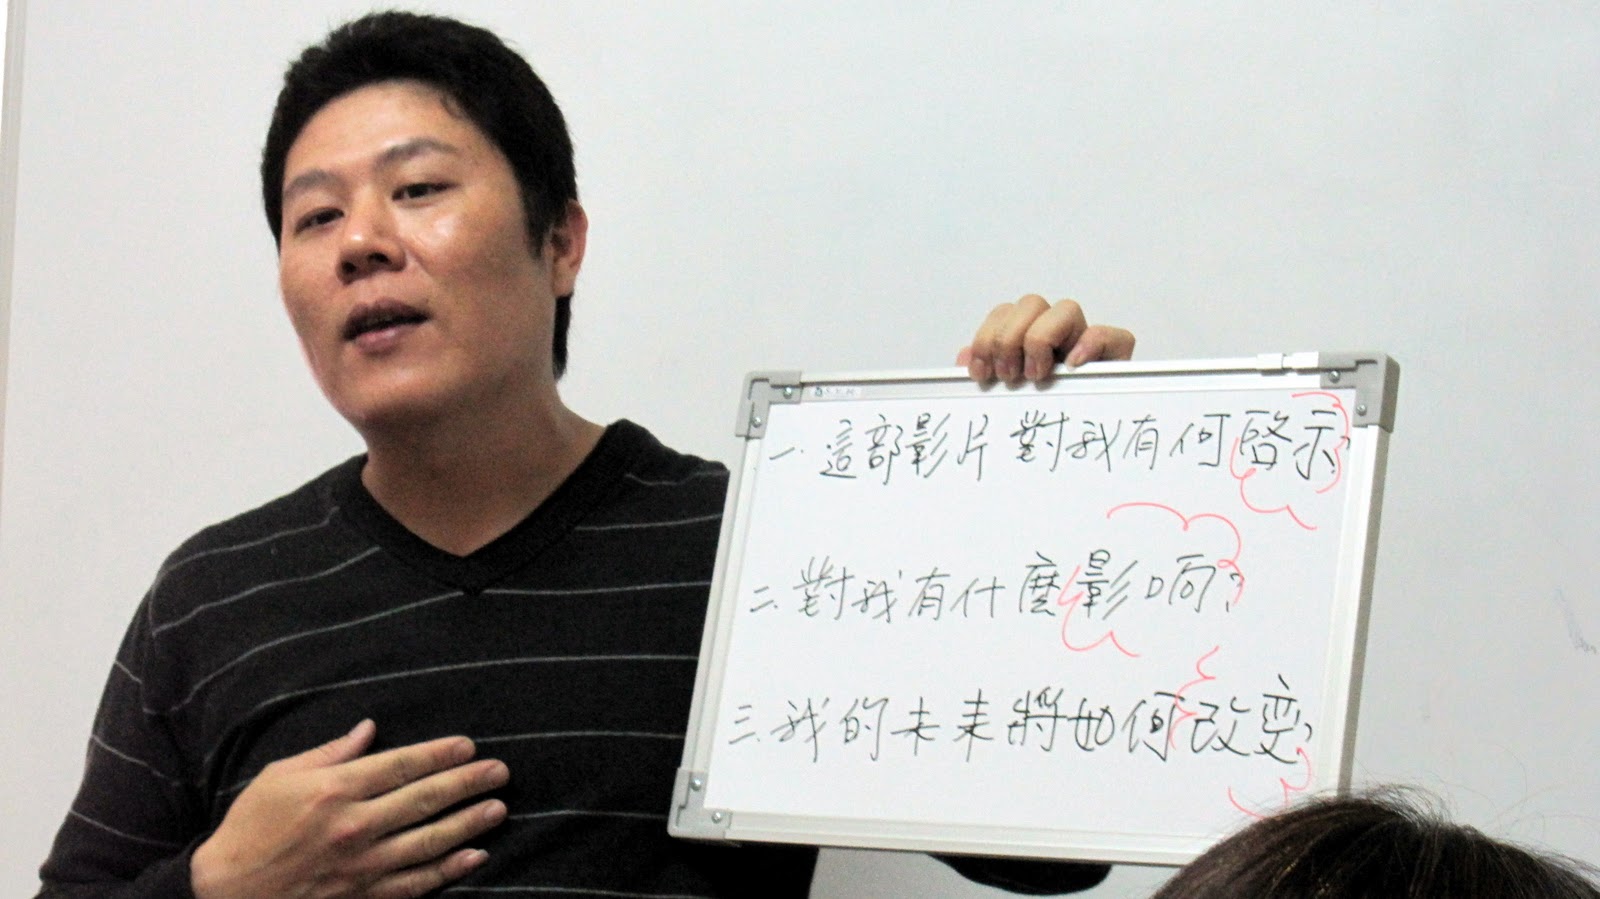 一.這部影片對我有何啓示?
二.對我有什麼影响?
三.我的未来將如何改变?